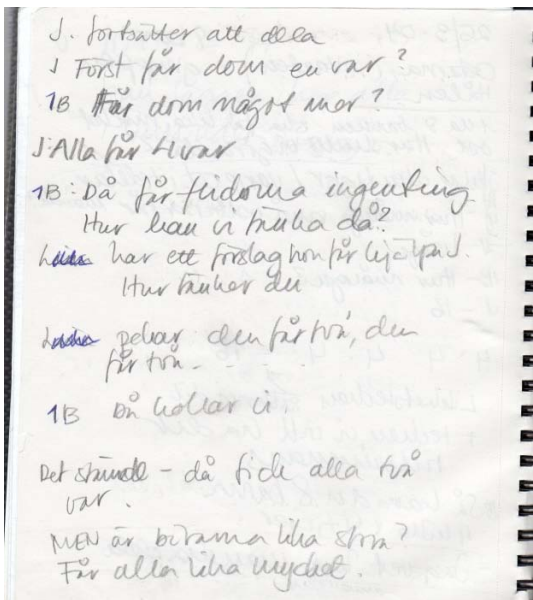 J. fortsätter att dela
J Först får dom en var?
1B Får dom något mer?
J: Alla får 4 var
1B: Då får ingenting.
Hur kan vi tänka då?
har ett förslag hon får hjälpa J.
Hur tänker du
pekar den får två, den
får två - . -
1B Då kollar vi.
Det stämde - då fick alla två
var.
MEN är bitarna lika stora?
Får alla lika mycket.